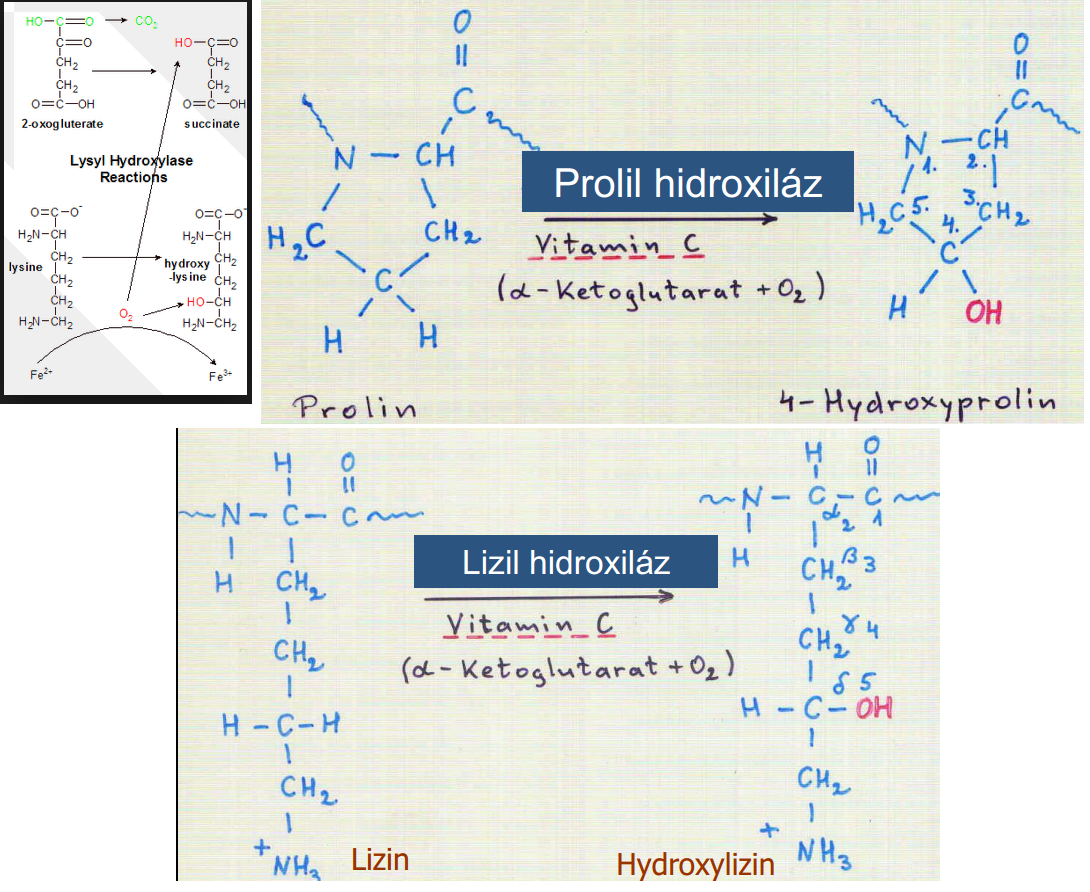 HO—C=O → CO2
C=O
CH2
CH2
O=C—OH
2-oxogluterate
HO—C=O
CH2
CH2
O=C—OH
succinate
Lysyl Hydroxylase
Reactions
O=C—O-
H2N—CH
CH2
CH2
CH2
H2N—CH2
lysine
O=C—O-
H2N—CH
CH2
CH2
HO—CH
H2N—CH2
hydroxy
-lysine
O2
Fe2+
Fe3+
O
C
N — CH
H2C
CH2
C
H
H
Prolin
Prolil hidroxiláz
Vitamin C
(α-Ketoglutarat + O2)
O
C
N — CH
1.
2.
H2C 5.
3. CH2
4.
C
H
OH
4-Hydroxyprolin
H O
N — C — C
H CH2
CH2
H — C — H
CH2
+
NH3
Lizin
Lizil hidroxiláz
Vitamin C
(α-Ketoglutarat + O2)
H O
N — C — C
α 2 1
H
CH2 β 3
CH2 γ 4
δ 5
H — C — OH
CH2
+
NH3
Hydroxylizin